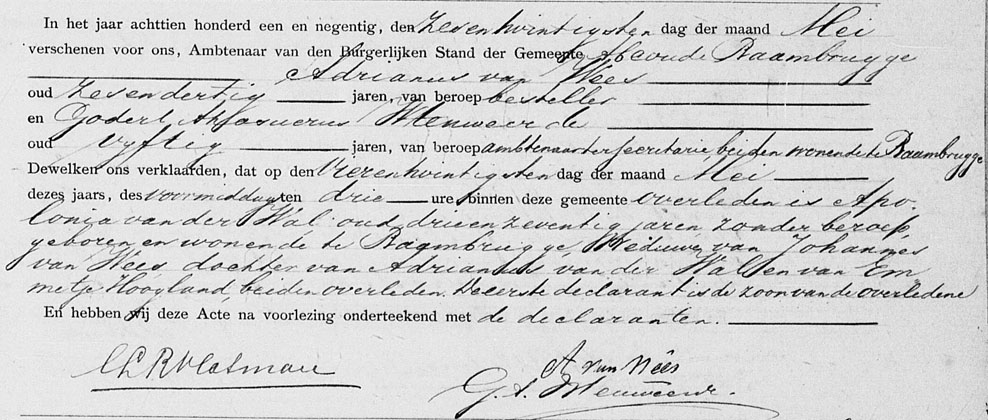 In het jaar achttien honderd een en negentig, den Zesentwintigsten dag der maand Mei
verschenen voor ons, Ambtenaar van den Burgerlijken Stand der Gemeente Abcoude Baambrugge
Adrianus van Wees
oud Zesendertig jaren, van beroep besteller
en Godert Ahasuerus
oud vyftig jaren, van beroep ambtenaar ter secretarie, beiden wonende te Baambrugge
Dewelken ons verklaarden, dat op den Vierentwintigsten dag der maand Mei
dezes jaars, des voormiddags ten drie ure binnen deze gemeente overleden is Apo-
lonia van der Wal oud drieenzeventig jaren, zonder beroep,
geboren en wonende te Baambrugge, Weduwe van Johannes
van Wees dochter van Adrianus van der Wal en van Em
metje Hoogland, beiden overleden. De eerste declarant is de zoon van de overledene
En hebben wij deze Acte na voorlezing onderteekend met de declaranten.
A van Wees
G. A.